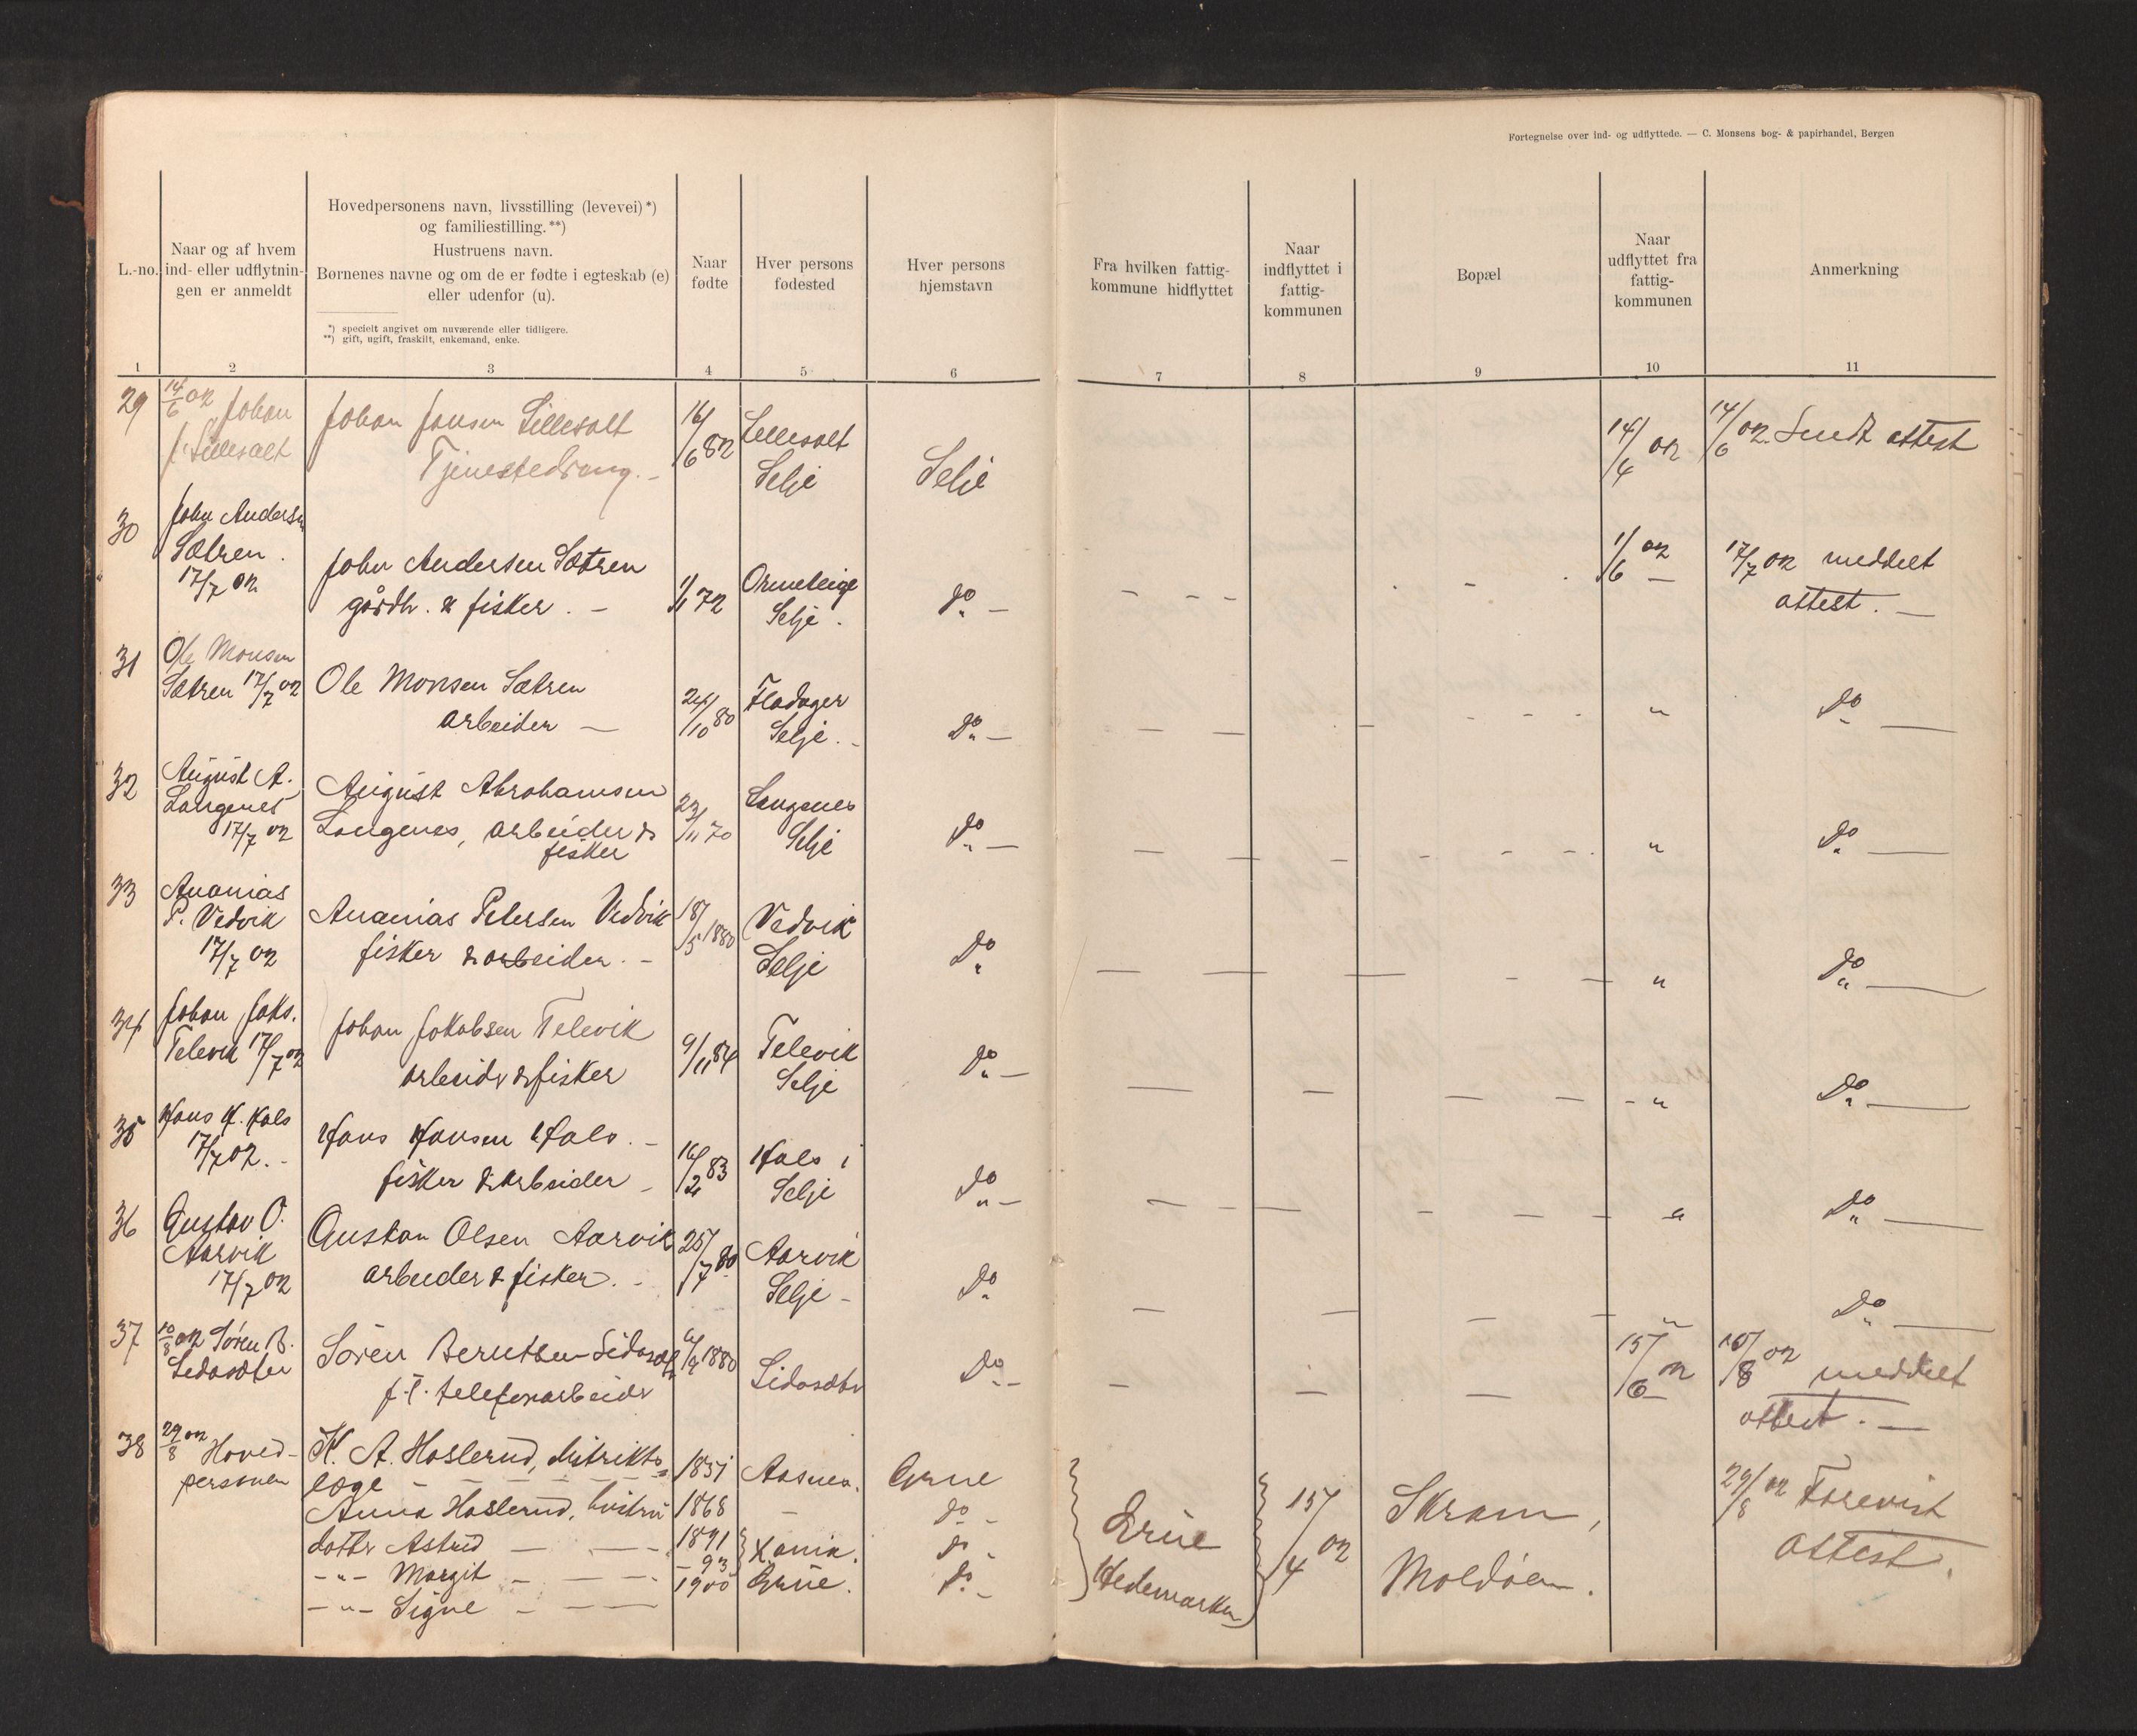 Fortegnelse over ind- og udflyttede. — C. Monsens bog- & papirhandel, Bergen
L.-no.
Naar og af hvem
ind- eller udflytnin-
gen er anmeldt
Hovedpersonens navn, livsstilling (levevei) *)
og familiestilling. **)
Hustruens navn.
Børnenes navne og om de er fødte i egteskab (e)
eller udenfor (u).
*) specielt angivet om nuværende eller tidligere.
**) gift, ugift, fraskilt, enkemand, enke.
Naar
fødte
Hver persons
fødested
Hver persons
hjemstavn
Fra hvilken fattig-
kommune hidflyttet
Naar
indflyttet i
fattig-
kommunen
Bopæl
Naar
udflyttet fra
fattig-
kommunen
Anmerkning
1 2 3 4 5 6 7 8 9 10 11
29 14/6 02 Johan
J. Sillesalt
Johan Jansen Sillesalt
Tjenestedreng. –
16/6 82
Sillesalt
Selje
Selje
14/4 02
14/6 02 Sendt attest
30 John Andersen
Sætren.
17/7 02
John Andersen Sætren
gårdb. & fisker. –
1/1 72
Ormeteige
Selje.
do –
1/6 02 –
17/7 02 meddelt
attest. –
31 Ole Monsen
Sætren 17/7 02
Ole Monsen Sætren
arbeider –
24/10 80
Fladager
Selje. –
do –
"
do –
32 August A.
Langenes
17/7 02
August Abrahamsen
Langenes, arbeider &
fisker
23/11 70
Langenes
Selje
do –
"
do –
33 Ananias
P. Vedvik
17/7 02
Ananias Petersen Vedvik
fisker & arbeider. –
18/5 1880
Vedvik
Selje
do
"
do –
34 Johan Jaks.
Televik 17/7 02
Johan Jakobsen Televik
arbeidr & fisker
9/11 84
Televik
Selje
do –
"
do –
35 Hans H. Hals
17/7 02. –
Hans Hansen Hals. –
fisker & arbeider –
16/2 83
Hals i
Selje
do –
"
do –
36 Gustav O.
Aarvik
17/7 02
Gustav Olsen Aarvik
arbeider & fisker. –
25/7 80
Aarvik
Selje –
do
"
do –
37 10/8 02 Søren B.
Søren Berntsen
f. t. telefonarbeidr
1880
do –
15/6 02
10/8 02 meddelt
attest. –
38 29/8 02 Hoved-
personen
K. A. Haslerud, distrikts-
læge –
1851
Aasnes.
Grue
Anna Haslerud, hustru
1868
–
do –
datter Astrid – –
1891
do –
– " – Margit – –
– 93
Grue.
do –
– " – Signe – –
1900
Grue
Hedemarken
15/4 02
Skram,
Moldöen.
29/8 02 Forevist
attest.